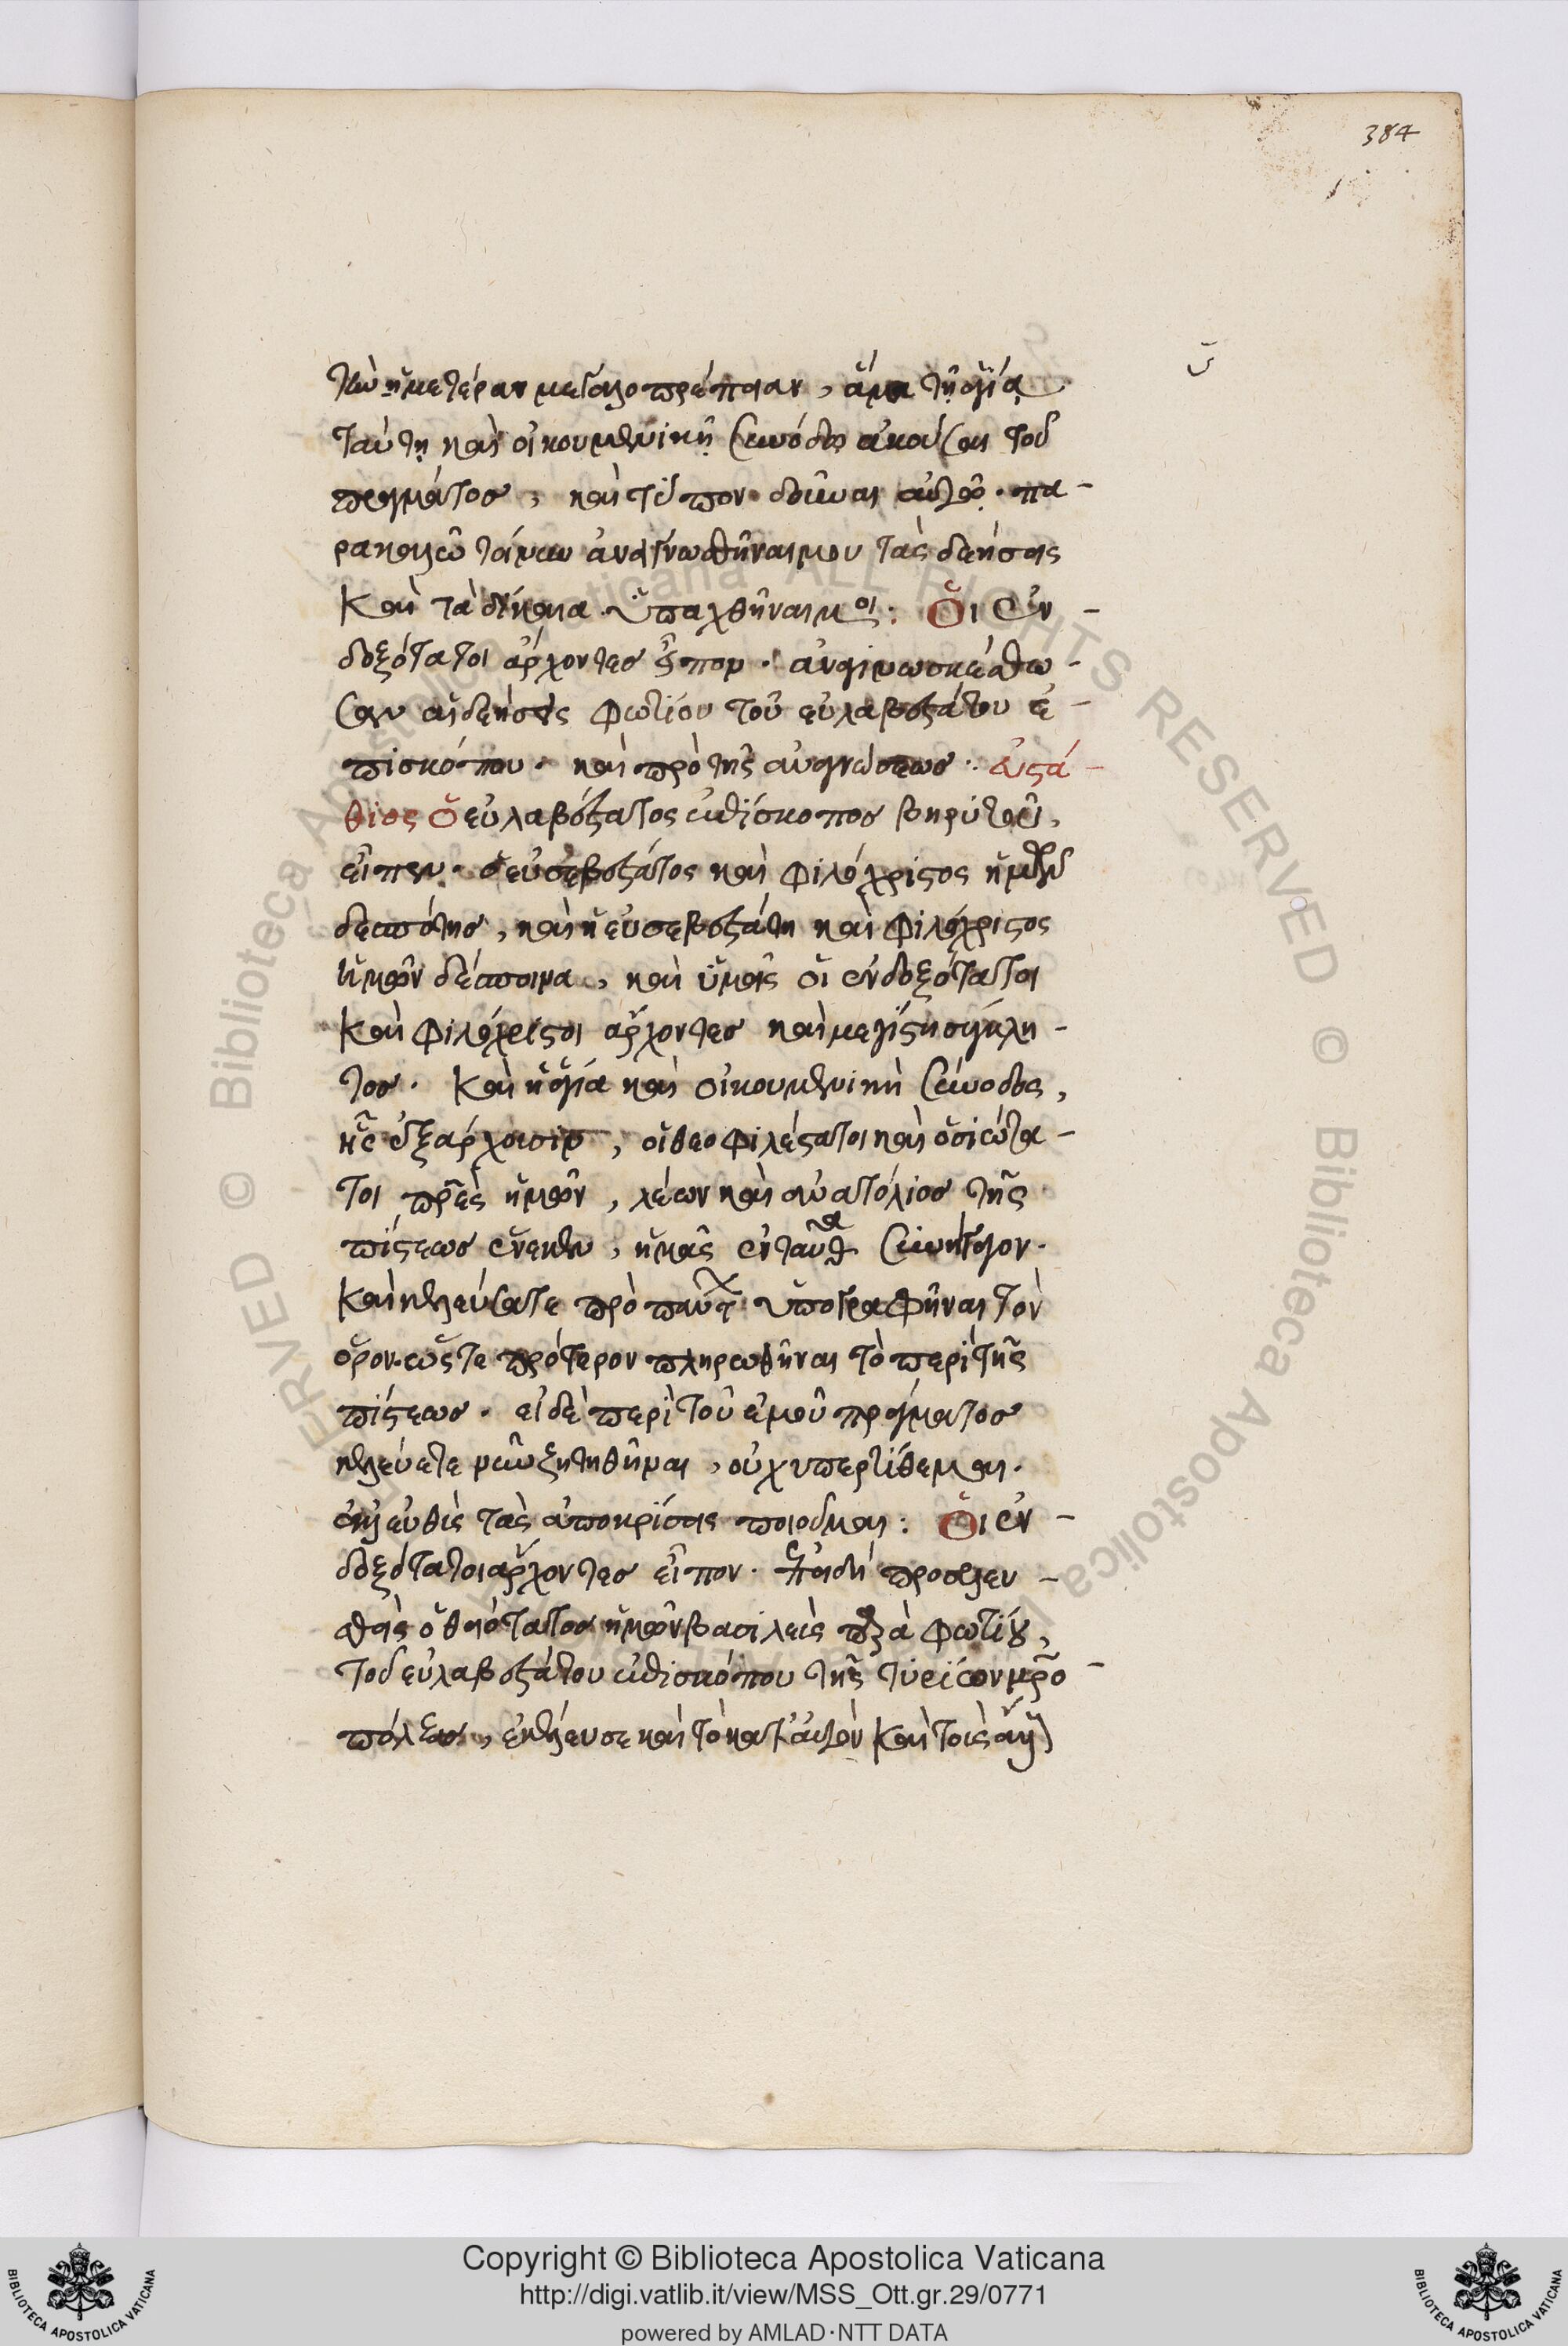 384
υ
τὴν ἡμετέραν μεγαλοπρέπειαν, ἅμα τῇ ἁγίᾳ
ταύτῃ καὶ οἰκουμενικῇ συνόδῳ ἀκοῦσαι τοῦ
πράγματος, καὶ τύπον δοῦναι αὐτῷ. πα-
ρακαλῶ τοίνυν ἀναγνωσθῆναι μου τὰς δεήσεις
καὶ τὰ δίκαια ὑπαχθῆναι μοι: Οἱ ἐν-
δοξότατοι ἄρχοντες εἶπον. ἀναγινωσκέσθω-
σαν αἱ δεήσεις Φωτίου τοῦ εὐλαβεστάτου ἐ-
πισκόπου. καὶ πρὸ τῆς ἀναγνώσεως. Εὐστά-
θιος ὁ εὐλαβέστατος ἐπίσκοπος βηρύτου,
εἶπεν. ὁ εὐσεβέστατος καὶ φιλόχριστος ἡμῶν
δεσπότης, καὶ ἡ εὐσεβεστάτη καὶ φιλόχριστος
ἡμῶν δέσποινα, καὶ ὑμεῖς οἱ ἐνδοξότατοι
καὶ φιλόχριστοι ἄρχοντες καὶ μεγίστη σύγκλη-
τος. καὶ ἡ ἁγία καὶ οἰκουμενικὴ σύνοδος,
ἧς ἐξάρχουσιν, οἱ θεοφιλέστατοι καὶ ὁσιώτα-
τοι πρες ἡμῶν, λέων καὶ ἀνατόλιος τῆς
πίστεως ἕνεκεν, ἡμᾶς ἐνταῦθα συνήγαγον.
καὶ κελεύσατε πρὸ παντ ὑπογραφῆναι τὸν
ὅρον. ὥστε πρότερον πληρωθῆναι τὸ περὶ τῆς
πίστεως. εἰ δὲ περὶ τοῦ ἐμοῦ πράγματος
κελεύετε νῦν ζητηθῆναι, οὐχ υπερτίθεμαι.
ἀλλ εὐθὺς τὰς ἀποκρίσεις ποιοῦμαι: Οἱ ἐν-
δοξότατοι ἄρχοντες εἶπον. ἐπειδὴ προσελευ-
σθεὶς ὁ θειότατος ἡμῶν βασιλεὺς παρὰ Φωτίου,
τοῦ εὐλαβεστάτου ἐπισκόπου τῆς τυρίων μρο-
πόλεως, ἐκέλευσε καὶ τὸ κατ αὐτὸν καὶ τοὺς ἀλλ
Copyright © Biblioteca Apostolica Vaticana
http://digi.vatlib.it/view/MSS_Ott.gr.29/0771
powered by AMLAD·NTT DATA